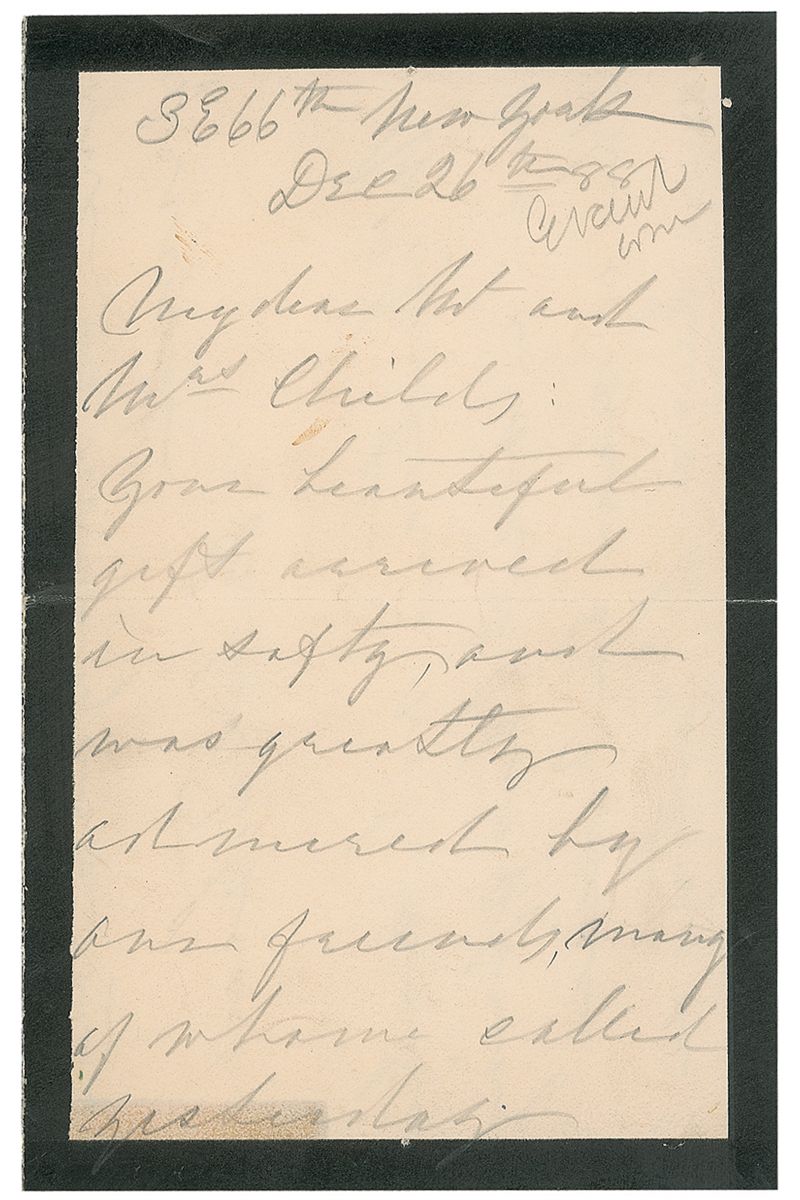 3 E 66th New York
Dec 26th 88
My dear Mr and
Mrs Childs:
Your beautiful
gift arrived
in safty, and
was greatly
admired by
our friends, many
of whome called
yesterday